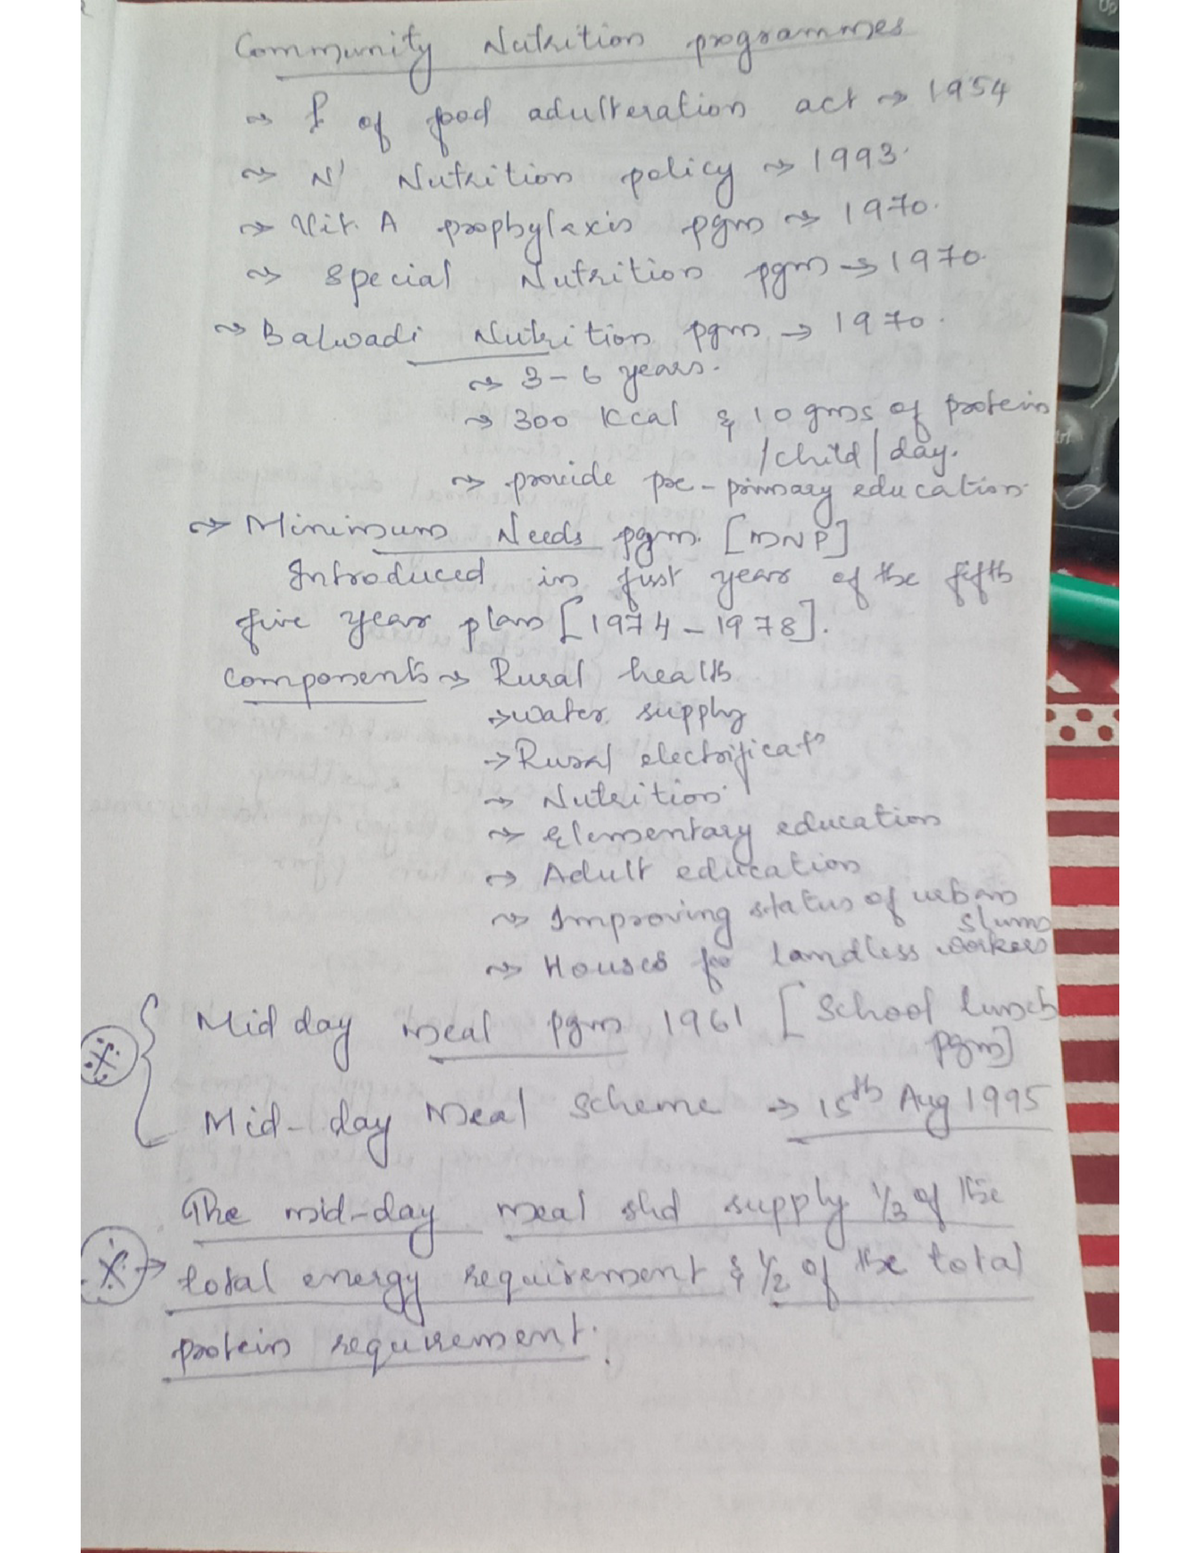 Community Nutrition programmes
→ P of food adulteration act → 1954
→ N' Nutrition policy → 1993.
→ Vit. A prophylaxis pgm → 1970.
→ Special Nutrition pgm → 1970.
→ Balwadi Nutrition pgm → 1970.
→ 3-6 years.
→ 300 Kcal & 10 gms of protein
/child/day.
→ provide pre-primary education.
→ Minimum Needs pgm. [MNP]
Introduced in first year of the fifth
five year plan [1974-1978].
Components → Rural health
→ water supply
→ Rural electrificatⁿ
→ Nutrition
→ Elementary education
→ Adult education
→ Improving status of urban
slums
→ Houses for landless workers
Mid day meal pgm 1961 [School lunch
pgm]
Mid-day Meal Scheme → 15th Aug 1995
The mid-day meal shd supply 1/3 of the
total energy requirement & 1/2 of the total
protein requirement.